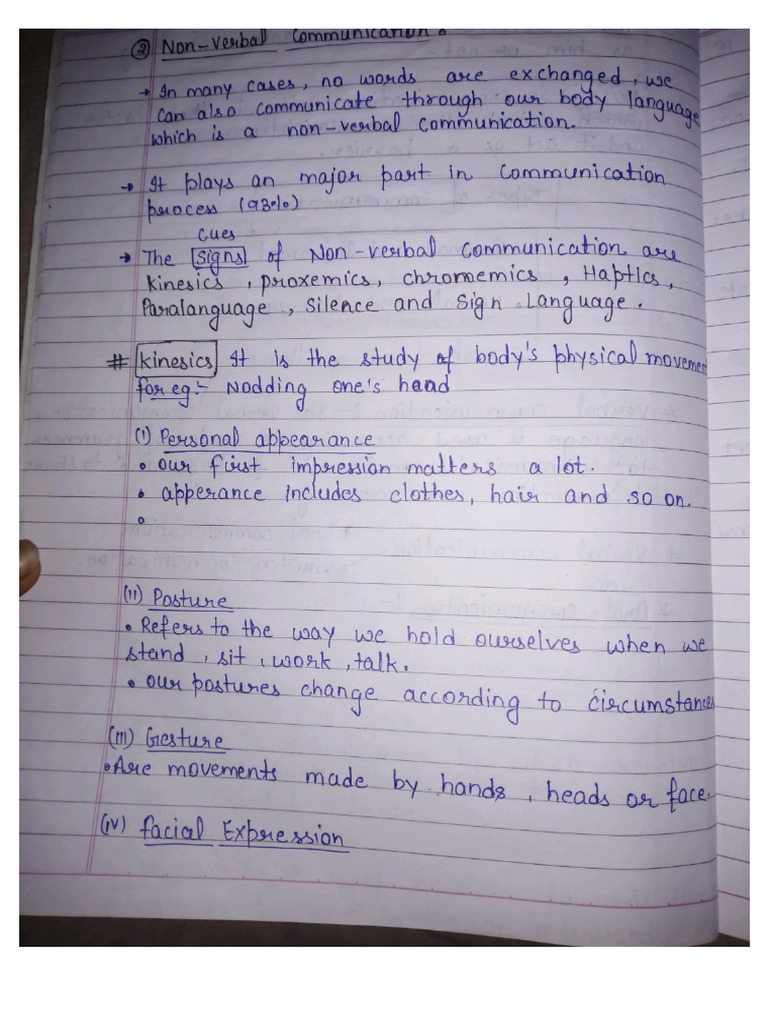 ② Non-verbal Communication.
→ In many cases, no words are exchanged, we
can also communicate through our body language
which is a non-verbal communication.
→ It plays an major part in communication
process (93%)
cues
→ The signs of Non-verbal communication are
kinesics, proxemics, chromemics, Haptics,
Paralanguage, silence and sign language.
# kinesics It is the study of body's physical movement
for eg:- Nodding one's head
(i) Personal appearance
• our first impression matters a lot.
• apperance includes clothes, hair and so on.
•
(ii) Posture
• Refers to the way we hold ourselves when we
stand, sit, work, talk.
• our postures change according to circumstances
(iii) Gesture
• Are movements made by hands, heads or face.
(iv) facial Expression